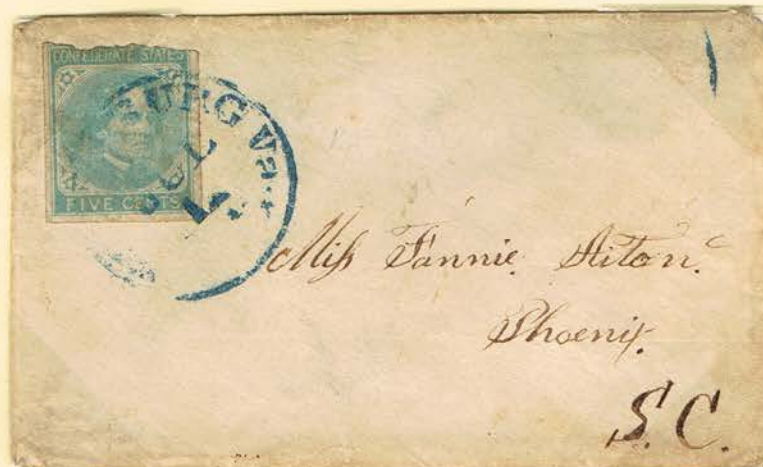 CONFEDERATE STATES
FIVE CENTS
BURG Va.
JUL
Miss Fannie Aiton.
Phoenix.
S.C.